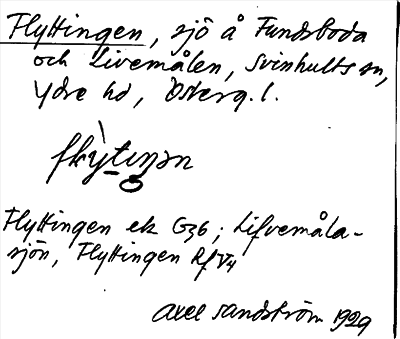 Flyttingen, sjö å Fundsboda
och Livemålen, Svinhults sn,
Ydre hd, Österg. l.
Flyttingen ek G36; Lifvemåla-
sjön, Flyttingen Rf V4
Axel Sandström 1929